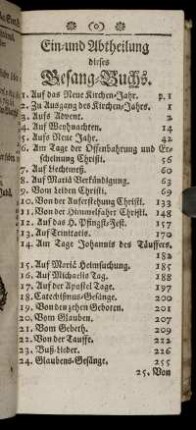 (o)
Ein- und Abtheilung
dieses
Gesang-Buchs.
1. Auf das Neue Kirchen-Jahr. p. 1
2. Zu Ausgang des Kirchen-Jahrs. 1
3. Aufs Advent. 2
4. Auf Weyhnachten. 14
5. Aufs Neue Jahr. 42
6. Am Tage der Offenbahrung und Er-
scheinung Christi. 56
7. Auf Liechtmeß. 60
8. Auf Mariä Verkündigung. 63
9. Vom Leiden Christi. 69
10. Von der Auferstehung Christi. 133
11. Von der Himmelfahrt Christi. 148
12. Auf das H. Pfingst-Fest. 157
13. Auf Trinitatis. 170
14. Am Tage Johannis des Täuffers.
182
15. Auf Mariä Heimsuchung. 185
16. Auf Michaelis Tag. 188
17. Auf der Apostel Tage. 197
18. Catechißmus-Gesänge. 200
19. Von den zehen Geboten. 201
20. Vom Glauben. 207
21. Vom Gebeth. 209
22. Von der Tauffe. 212
23. Buß-Lieder. 216
24. Glaubens-Gesänge. 255
25. Von